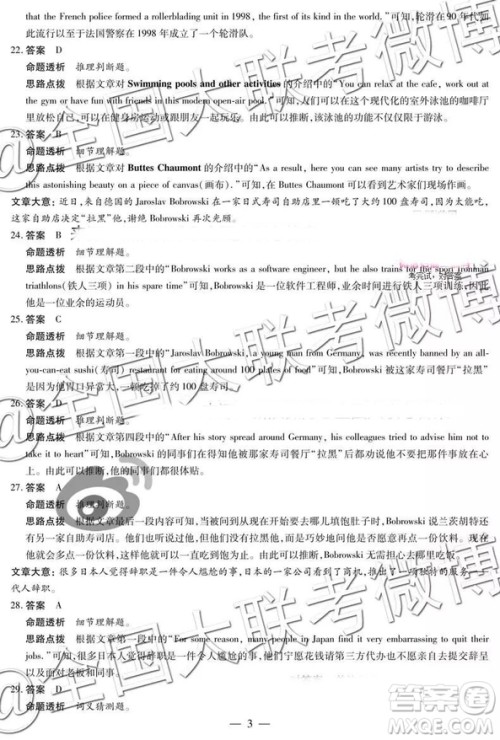 that the French police formed a rollerblading unit in 1998, the first of its kind in the world."可知，轮滑在 90 年代如
此流行以至于法国警察在 1998 年成立了一个轮滑队。
22. 答案 D
命题透析 推理判断题。
思路点拨 根据文章对 Swimming pools and other activities 的介绍中的"You can relax at the cafe, work out
at the gym or have fun with friends in this modern open-air pool."可知，友们可以在这个现代化的室外泳池的咖啡
厅里放松自己，可以在健身房运动或跟朋友一起玩乐。由此可以推断，该泳池不只局限于游泳。
23. 答案 B
命题透析 细节理解题。
思路点拨 根据文章对 Buttes Chaumont 的介绍中的"As a result, here you can see many artists try describe this
astonishing beauty on a piece of canvas(画布)."可知，在 Buttes Chaumont 可以看到艺术家们现场画画。
文章大意：近日，来自德国的 Jaroslav Bobrowski 在一日式寿司自助店里一下子吃了大约 100 盘寿司。因为太能吃，
这家自助店决定"拉黑"他，谢绝 Bobrowski 再次光顾。
24. 答案 B
命题透析 细节理解题。
思路点拨 根据文章第二段中的"Bobrowski works as a software engineer, but he also trains for the sport ironman
triathlons(铁人三项) in his spare time"可知，Bobrowski 是一位软件工程师，业余时间进行铁人三项训练，因此
他是一位业余的运动员。
25. 答案 C
命题透析 细节理解题。
思路点拨 根据文章第一段中的"Jaroslav Bobrowski, a young man from Germany, was recently banned by an all-
you-can-eat sushi(寿司) restaurant for eating around 100 plates of food"可知，Bobrowski 被这家寿司餐厅"拉黑"
是因为他胃口异常大，一顿吃了大约 100 盘寿司。
26. 答案
命题透析 推理判断题。
思路点拨 根据文章第四段中的"After his story spread around Germany, his colleagues tried to advise him not to
take it to heart"可知，Bobrowski 被这家寿司餐厅"拉黑"后，他的同事们都劝他不要对此事耿耿于怀，要想开一
点。由此可以推断，他的同事们都很体贴。
27. 答案 A
命题透析 推理判断题。
思路点拨 根据文章最后一段内容可知，当被问及接下来要去哪儿填饱肚子时，Bobrowski 说兰茨胡特还
有另一家自助寿司店。但是，他并没有直接回答他要去这家餐厅，而是巧妙地问他是否应该点一份饮料，或者
他会多点一份饮料，这样他就可以一直吃到饱为止。由此可以推断，Bobrowski 正在委婉地说他要去哪里吃饭。
文章大意：很多日本人觉得辞职是一件令人尴尬的事，日本的一家公司看到了商机，推出了一项独特的服务——替
代人辞职。
28. 答案 A
命题透析 细节理解题。
思路点拨 根据文章第一段中的"For some reason, many people in Japan find it very embarrassing to quit their
jobs."可知，很多日本人觉得辞职是一件令人尴尬的事情，他们宁愿花钱请第三方代办也不愿意自己去辞职，从
而避免面对老板和同事。
29. 答案 D
命题透析 词义猜测题。
— 3 —
@全国大联考微博